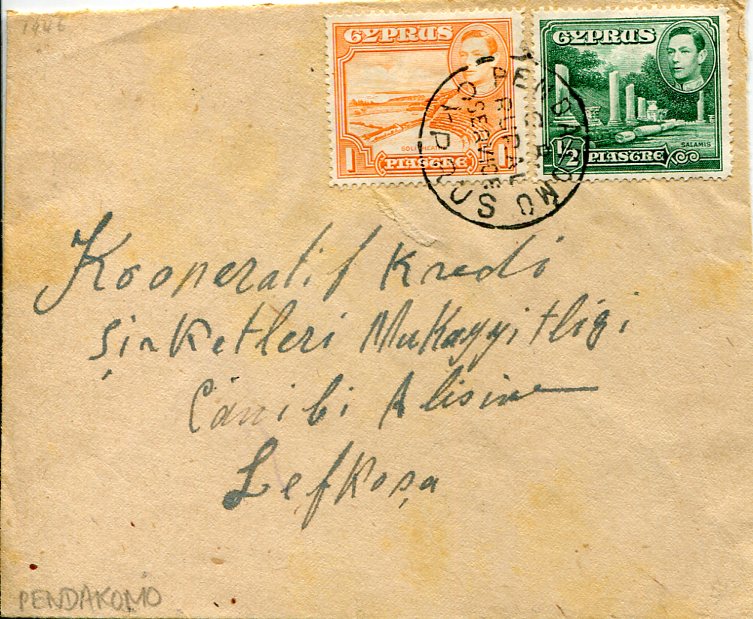 1946
CYPRUS
1
PIASTRE
CYPRUS
SALAMIS
1/2
PIASTRE
RURAL
SERVICE
Kooperatif Kredi
Şirketleri Mukayyitliği
Canibi Alisine
Lefkoşa
PENDAKOMO